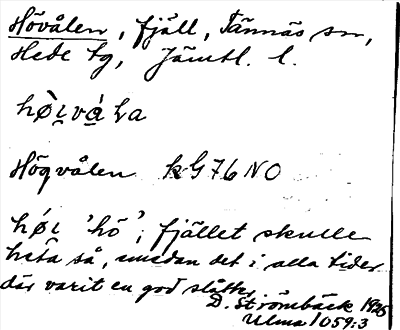 Hövålen, fjäll, Tännäs sn,
Hede tg, Jämtl. l.
hø̀ɩvá̱ɫa
Högvålen kG76NO
hǿɩ 'hö'; fjället skulle
heta så, medan det i alla tider
där varit en god slåtter
D. Strömbäck 1925
Ulma 1059:3